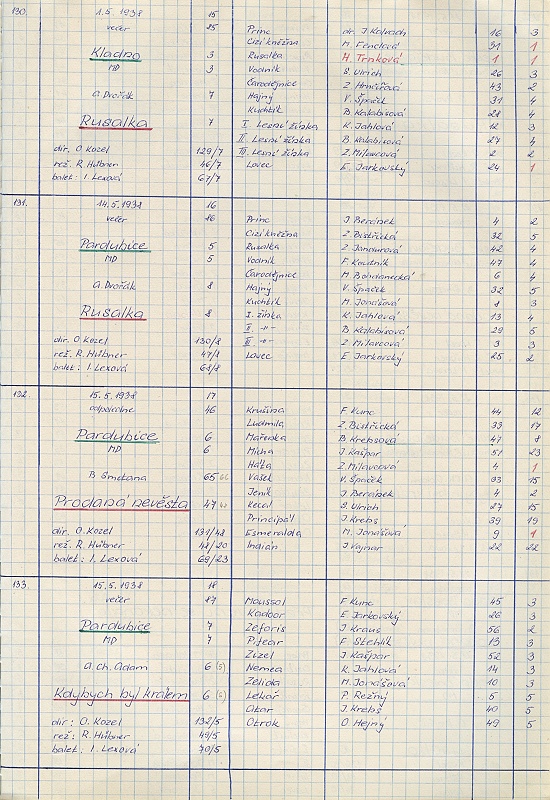 130. 1.5.1938 15 Princ dr. J Kalvach 16 3
večer 25 Cizí kněžna M. Fenclová 31 1
Kladno 3 Rusalka H. Trnková 1 1
MD 3 Vodník S. Ulrich 26 3
Čarodějnice Z Hrnčířová 43 2
A. Dvořák 7 Hajný V. Špaček 31 4
Kuchtík B Kalabisová 28 4
Rusalka 7 I. Lesní žínka K. Jahlová 12 3
II. Lesní žínka B. Kalabisová 27 4
dir. O. Kozel 129/7 III. Lesní žínka Z. Milavcová 2 2
rež. R. Hübner 46/7 Lovec E. Jarkovský 24 1
balet: I. Lexová 67/7
131. 14.5.1938 16
večer 16 Princ J Beránek 4 2
Cizí kněžna Z. Bistřická 32 5
Pardubice 5 Rusalka Z Jandurová 42 4
MD 5 Vodník F. Koutník 47 4
Čarodějnice M Bohdanecká 6 4
A. Dvořák 8 Hajný V. Špaček 32 5
Kuchtík M. Jonášová 8 3
Rusalka 8 I. žínka K. Jahlová 13 4
II. -"- B Kalabisová 29 5
dir. O Kozel 130/8 III -"- Z Milavcová 3 3
rež. R. Hübner 47/8 Lovec E Jarkovský 25 2
balet: I. Lexová 68/8
132. 15.5.1938 17
odpoledne 46 Krušina F Kunc 44 12
Ludmila Z. Bistřická 33 17
Pardubice 6 Mařenka B Krebsová 47 8
MD 6 Mícha J. Kašpar 51 23
Háta Z. Milavcová 4 1
B Smetana 65 Vašek V. Špaček 33 15
Jeník J Beránek 4 2
Prodaná nevěsta 47 Kecal S Ulrich 27 15
Principál J Krebs 39 19
dir. O. Kozel 131/48 Esmeralda M. Jonášová 9 1
rež.: R. Hübner 48/20 Indián J Vojnar 22 22
balet: I. Lexová 69/23
133. 15.5.1938 18
večer 87 Moussol F Kunc 45 3
Kadoor E Jarkovský 26 3
Pardubice 7 Zeforis J Kraus 56 2
MD 7 Pifear F Stehlík 13 3
Zizel J Kašpar 52 3
A. Ch. Adam 6 (5) Nemea K. Jahlová 14 3
Zelida M. Jonášová 10 3
Kdybych byl králem 6 (6) Lékař P. Režný 5 5
Atar J. Krebs 40 5
dir: O. Kozel 132/5 Otrok O. Hejný 49 5
rež: R. Hübner 49/5
balet: I. Lexová 70/5